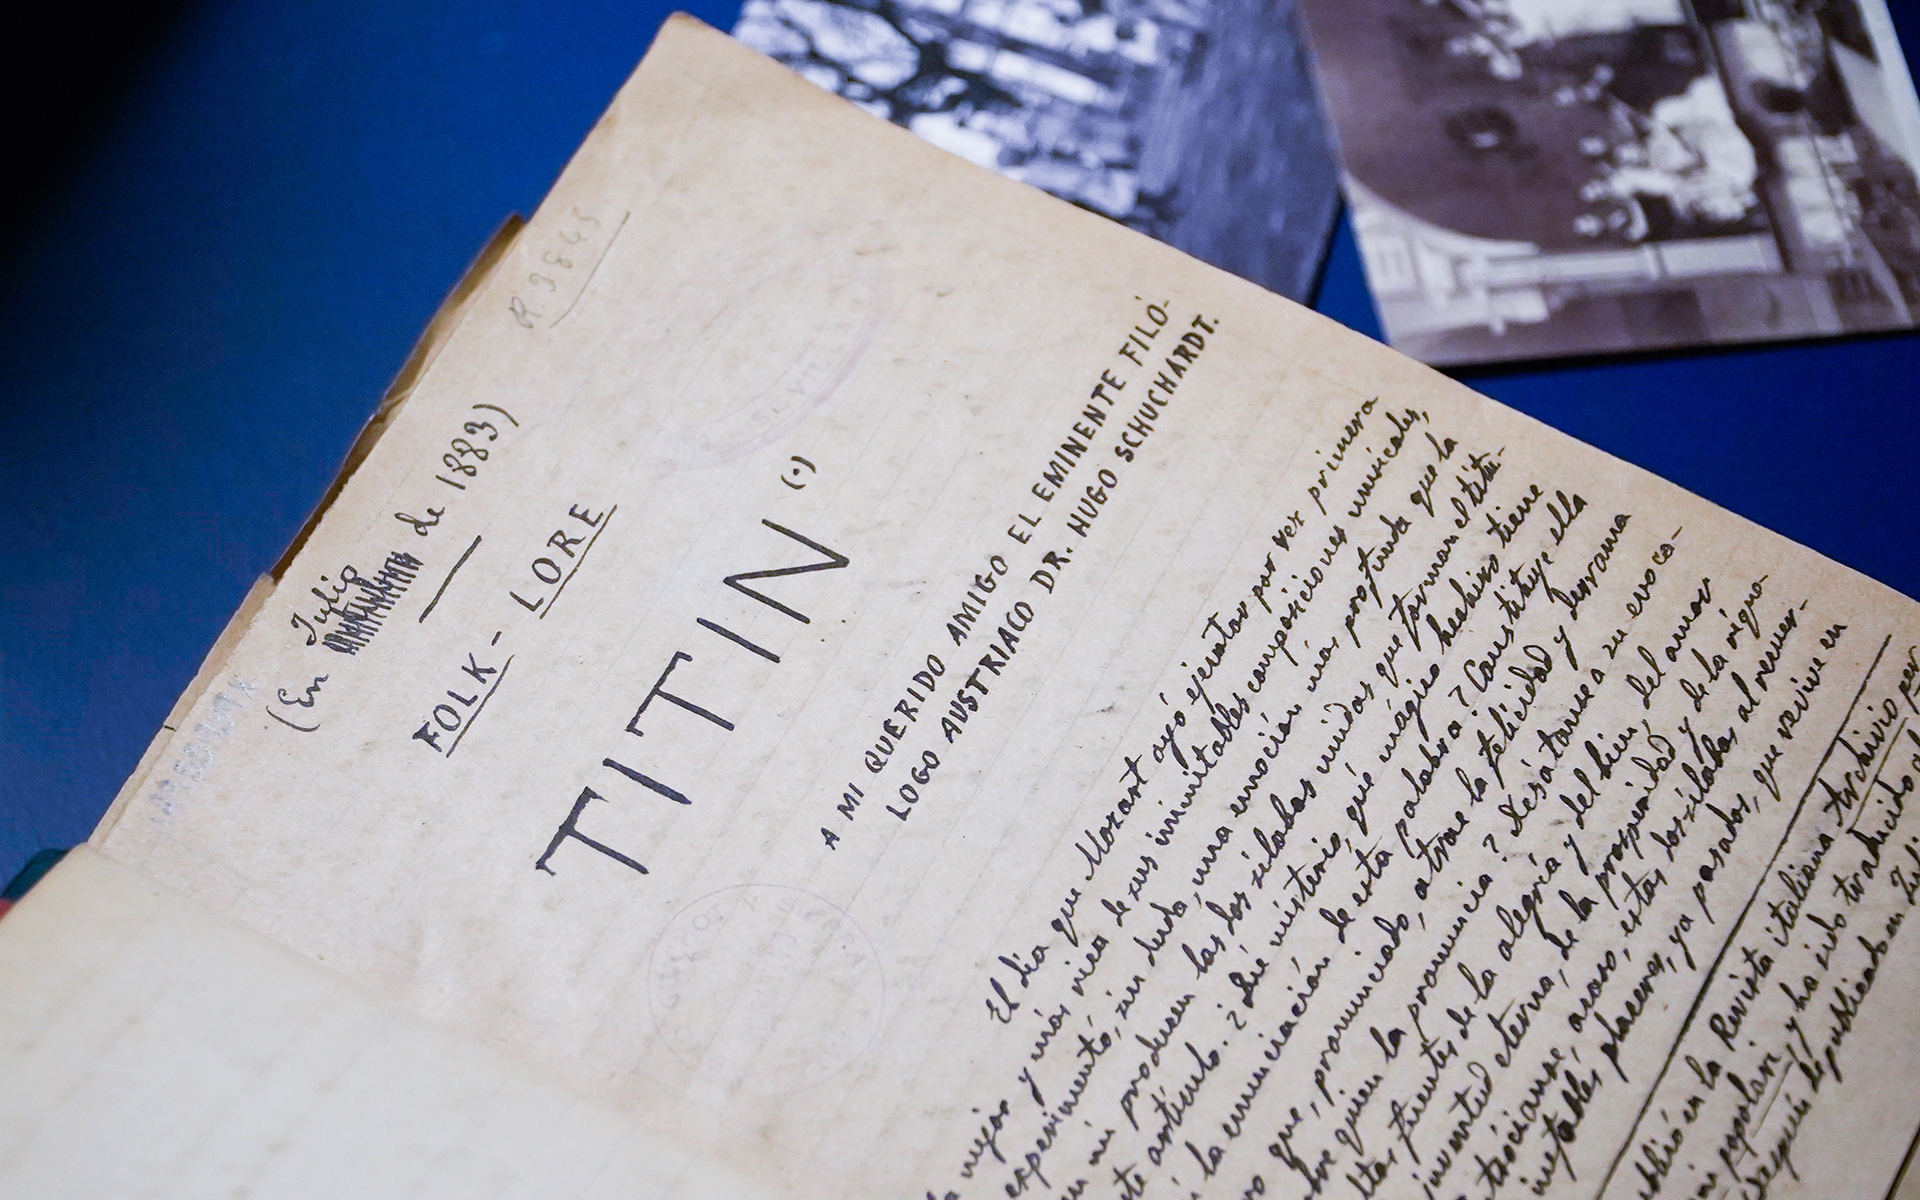 R. 9845
(En Julio de 1883)
FOLK-LORE
TITIN (·)
A MI QUERIDO AMIGO EL EMINENTE FILÓ-
LOGO AUSTRIACO DR. HUGO SCHUCHARDT.
El día que Mozart oyó ejecutar por vez primera
la mejor y más rica de sus inimitables composiciones musicales,
experimentó, sin duda, una emoción más profunda que la
en mi producen las dos sílabas unidas que forman el títu-
artículo. ¿Qué misterio, qué mágico hechizo tiene
la enunciación de esta palabra? Constituye ella
que, pronunciado, atrae la felicidad y derrama
quien la pronuncia? Desátanse a su evoca-
fuentes de la alegría y del bien, del amor
juventud eterna, de la prosperidad y de la rique-
acaso, estas dos sílabas al recuer-
placeres, ya pasados, que revive en
en la Revista italiana Archivio per
popolari y ha sido traducido al
después de publicado en